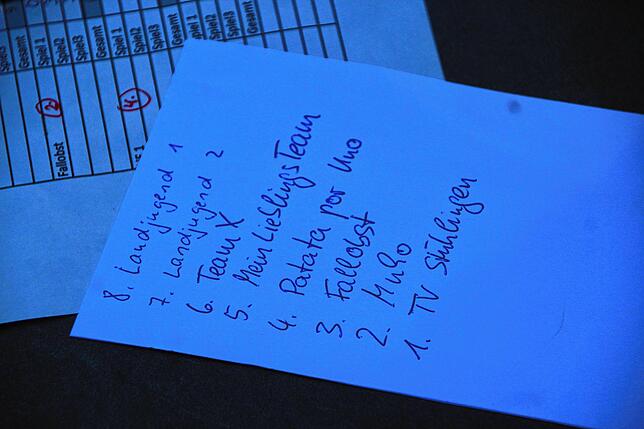 8. Landjugend 1
7. Landjugend 2
6. Team X
5. Mein Lieslings Team
4. Patata por Uno
3. Fallobst
2. Muho
1. TV Stühlingen
Spiel3
Gesamt
Spiel 1
Spiel2
Spiel3
Gesamt
Spiel 1
Spiel2
Spiel3
Gesamt
Spiel 1
Spiel2
Spiel3
Gesamt
2.
4.
Fallobst